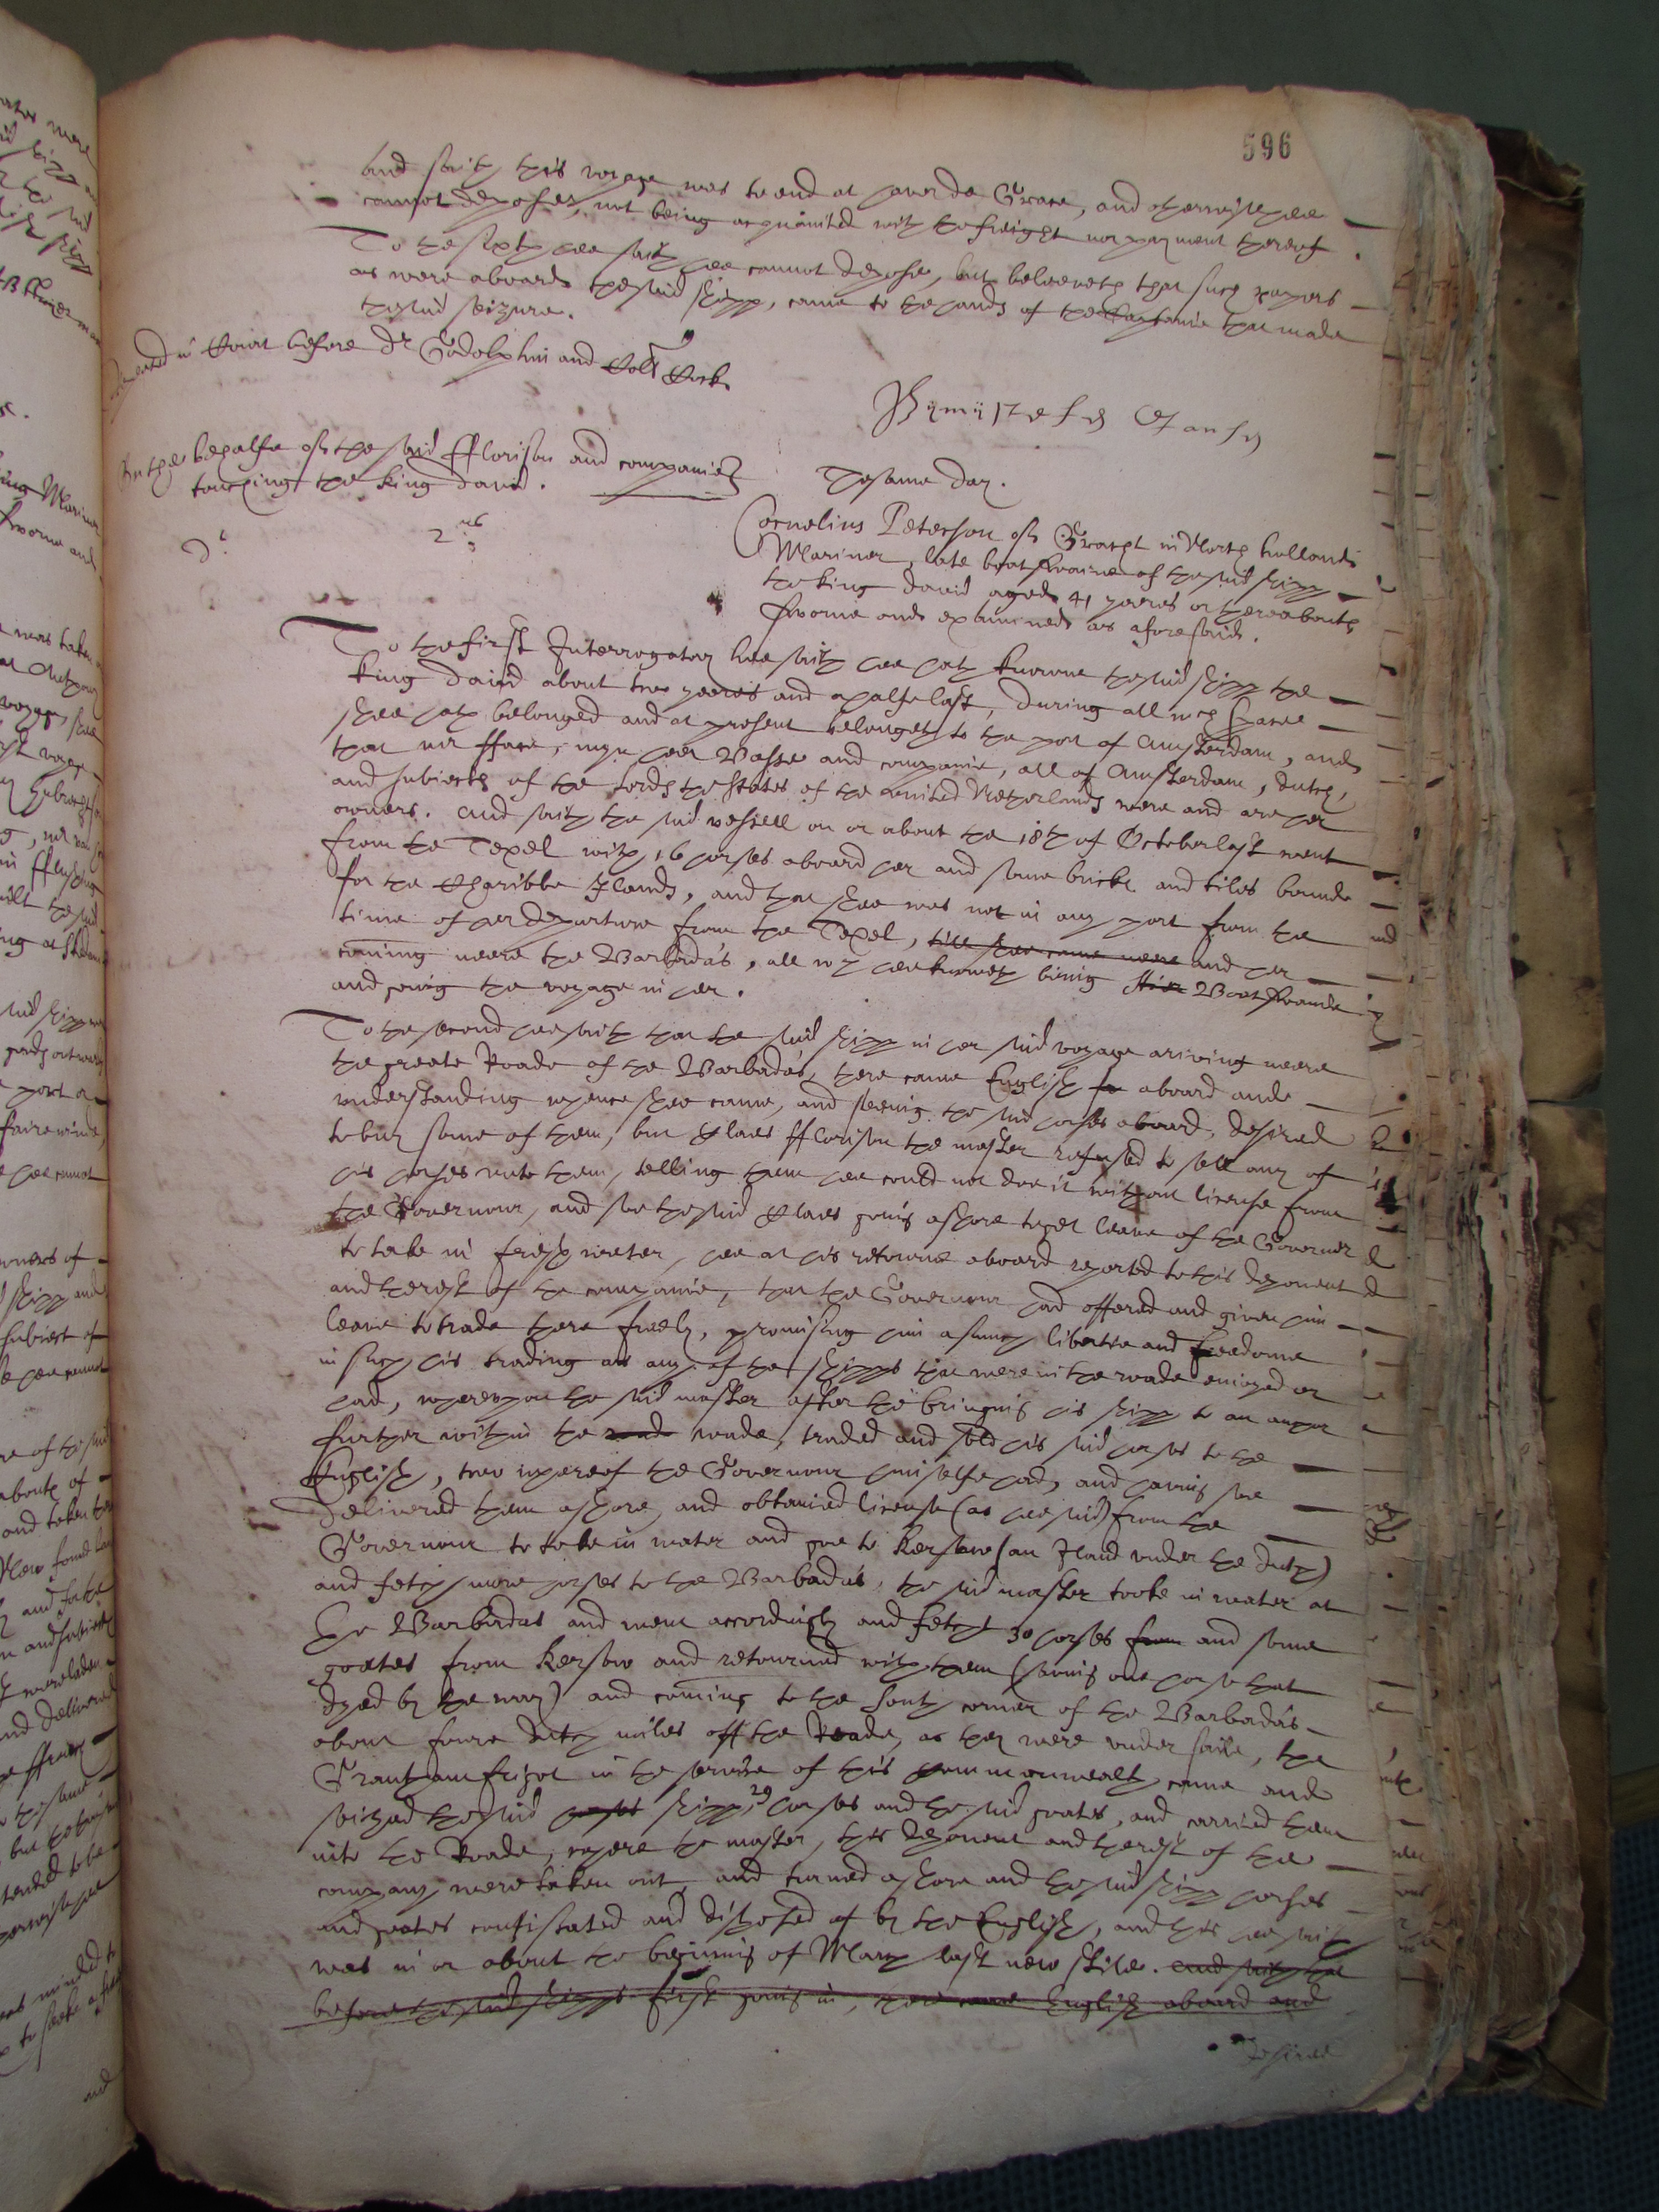 596
and saith this voyage was to end at haver de Grace, and otherwise hee
cannot depose, not being acquainted with the freight nor payment thereof.
To the sixth hee saith hee cannot depose, but beleeveth that such papers
as were aboard the said shipp, came to the hands of the that made
the said seizure.
in Court before dr Godolphin and Coll Cock
The same day.
In the behalfe of the said fflorison and companie
touching the king david.
Cornelius Peterson of Graept in North holland
Mariner, late boatswaine of the said shipp
the king david aged 41 yeeres or thereabouts
sworne and examined as aforesaid.
2us
To the first Interrogatory hee saith hee hath knowne the said shipp the
king david about two yeeres and a halfe last, during all wch space
shee hath belonged and at present belongeth to the port of Amsterdam, and
that mr fface, mynheer Basse and companie, all of Amsterdam, dutch,
and subiects of the lords the States of the united Netherlands were and are her
owners. And saith the said vessell on or about the 18th of October last went
from the Texel with 16 horses aboard her and some bricks and tiles bound
for the Charibbe Ilands, and that shee was not in any port from the
time of her departure from the Texel, till shee came neere and her
coming neere the Barbada's, all wch hee knoweth being Boatswaine
and going the voyage in her.
To the second hee saith that the said shipp in her said voyage ariving neere
the greate Roade of the Barbada's, there came English aboard and
understanding whence shee came, and seeing the said horses aboard, desired
to buy some of them, but Claes fflorison the master refused to sell any of
his horses unto them, telling them hee could not doe it without license from
the Governour, and soe the said Claes going ashore to get leave of the Governer
to take in fresh water, hee at his retourne aboard reported to this deponent
and the rest of the companie, that the Governour had offered and given him
leave to trade there freely, promising him as much libertie and freedome
in such his trading as any of the shipps that were in the roade enioyed or
had, whereupon the said master after the bringing his shipp to an anchor
further within the roade roade, traded and sold his said horses to the
English, two whereof the Governour himselfe had, and having soe
delivered them ashore, and obtained license (as hee said) from the
Governour to take in water and goe to Kersaw (an Iland under the dutch)
and fetch more horses to the Barbada's, the said master tooke in water at
the Barbadas and went accordingly and fetcht 30 horses from and some
goates from Kersaw and retourned with them (saving one horse that
dyed by the way) and coming to the south corner of the Barbada's
about foure dutch miles off the Roade, as they were under saile, the
Grantham frigot in the service of this commonwealth came and
seized the said horses shipp, 29 horses and the said goates, and carried them
into the Roade, where the master, this deponent and the rest of the
company were taken out and turned ashore and the said shipp horses
and goates confiscated and disposed of by the English, and this hee saith
was in or about the beginning of March last new stile. And saith that
before the said shipps first going in, there came English aboard and
desired